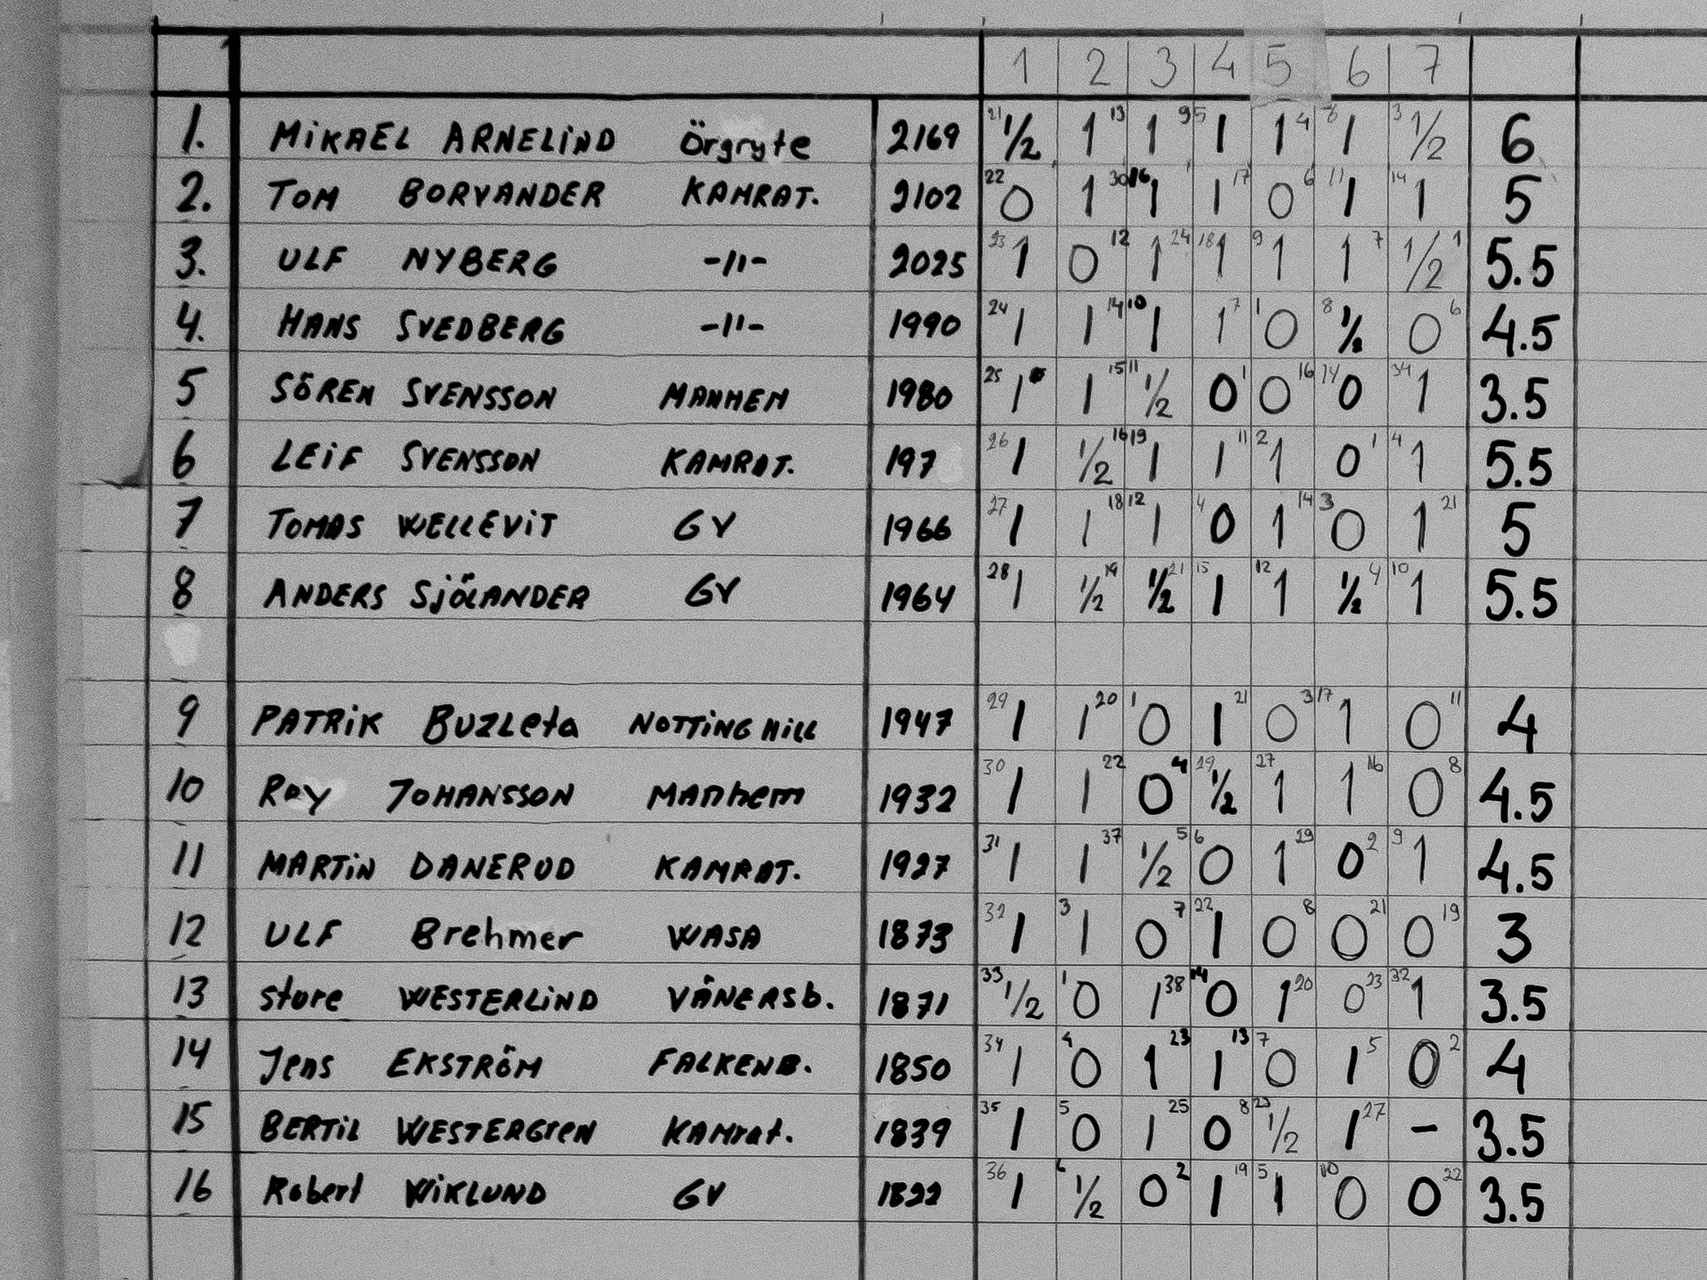 1 2 3 4 5 6 7
1. MIKAEL ARNELIND Örgryte 2169 21 ½ 1 13 1 9 5 1 1 4 8 1 3 ½ 6
2. TOM BORVANDER KAMRAT. 2102 22 0 1 30 16 1 1 17 0 6 11 1 14 1 5
3. ULF NYBERG -11- 2025 23 1 0 12 1 24 18 1 9 1 1 7 ½ 1 5.5
4. HANS SVEDBERG -11- 1990 24 1 1 14 10 1 1 7 1 0 8 ½ 0 6 4.5
5 SÖREN SVENSSON MANHEM 1980 25 1 1 15 11 ½ 0 1 0 16 14 0 34 1 3.5
6 LEIF SVENSSON KAMRAT. 197 26 1 ½ 16 19 1 1 11 2 1 0 1 4 1 5.5
7 TOMAS WELLEVIT GY 1966 27 1 1 18 12 1 4 0 1 14 3 0 1 21 5
8 ANDERS SJÖLANDER GY 1964 28 1 ½ 19 ½ 21 15 1 12 1 ½ 4 10 1 5.5
9 PATRIK BUZLeta NOTTING HILL 1947 29 1 1 20 1 0 1 21 0 3 17 1 0 11 4
10 Roy JOHANSSON Manhem 1932 30 1 1 22 0 4 19 ½ 27 1 1 16 0 8 4.5
11 MARTIN DANERUD KAMRAT. 1927 31 1 1 37 ½ 5 6 0 1 29 0 2 9 1 4.5
12 ULF Brehmer WASA 1873 32 1 3 1 0 7 22 1 0 8 0 21 0 19 3
13 sture WESTERLIND VÄNERSb. 1871 33 ½ 1 0 1 38 14 0 1 20 0 23 32 1 3.5
14 Jens EKSTRÖM FALKENB. 1850 34 1 4 0 1 23 1 13 7 0 1 5 0 2 4
15 BERTIL WESTERGreN KAMrat. 1839 35 1 5 0 1 25 0 8 23 ½ 1 27 - 3.5
16 Robert WIKLUND GY 1822 36 1 6 ½ 0 2 1 19 5 1 10 0 0 22 3.5